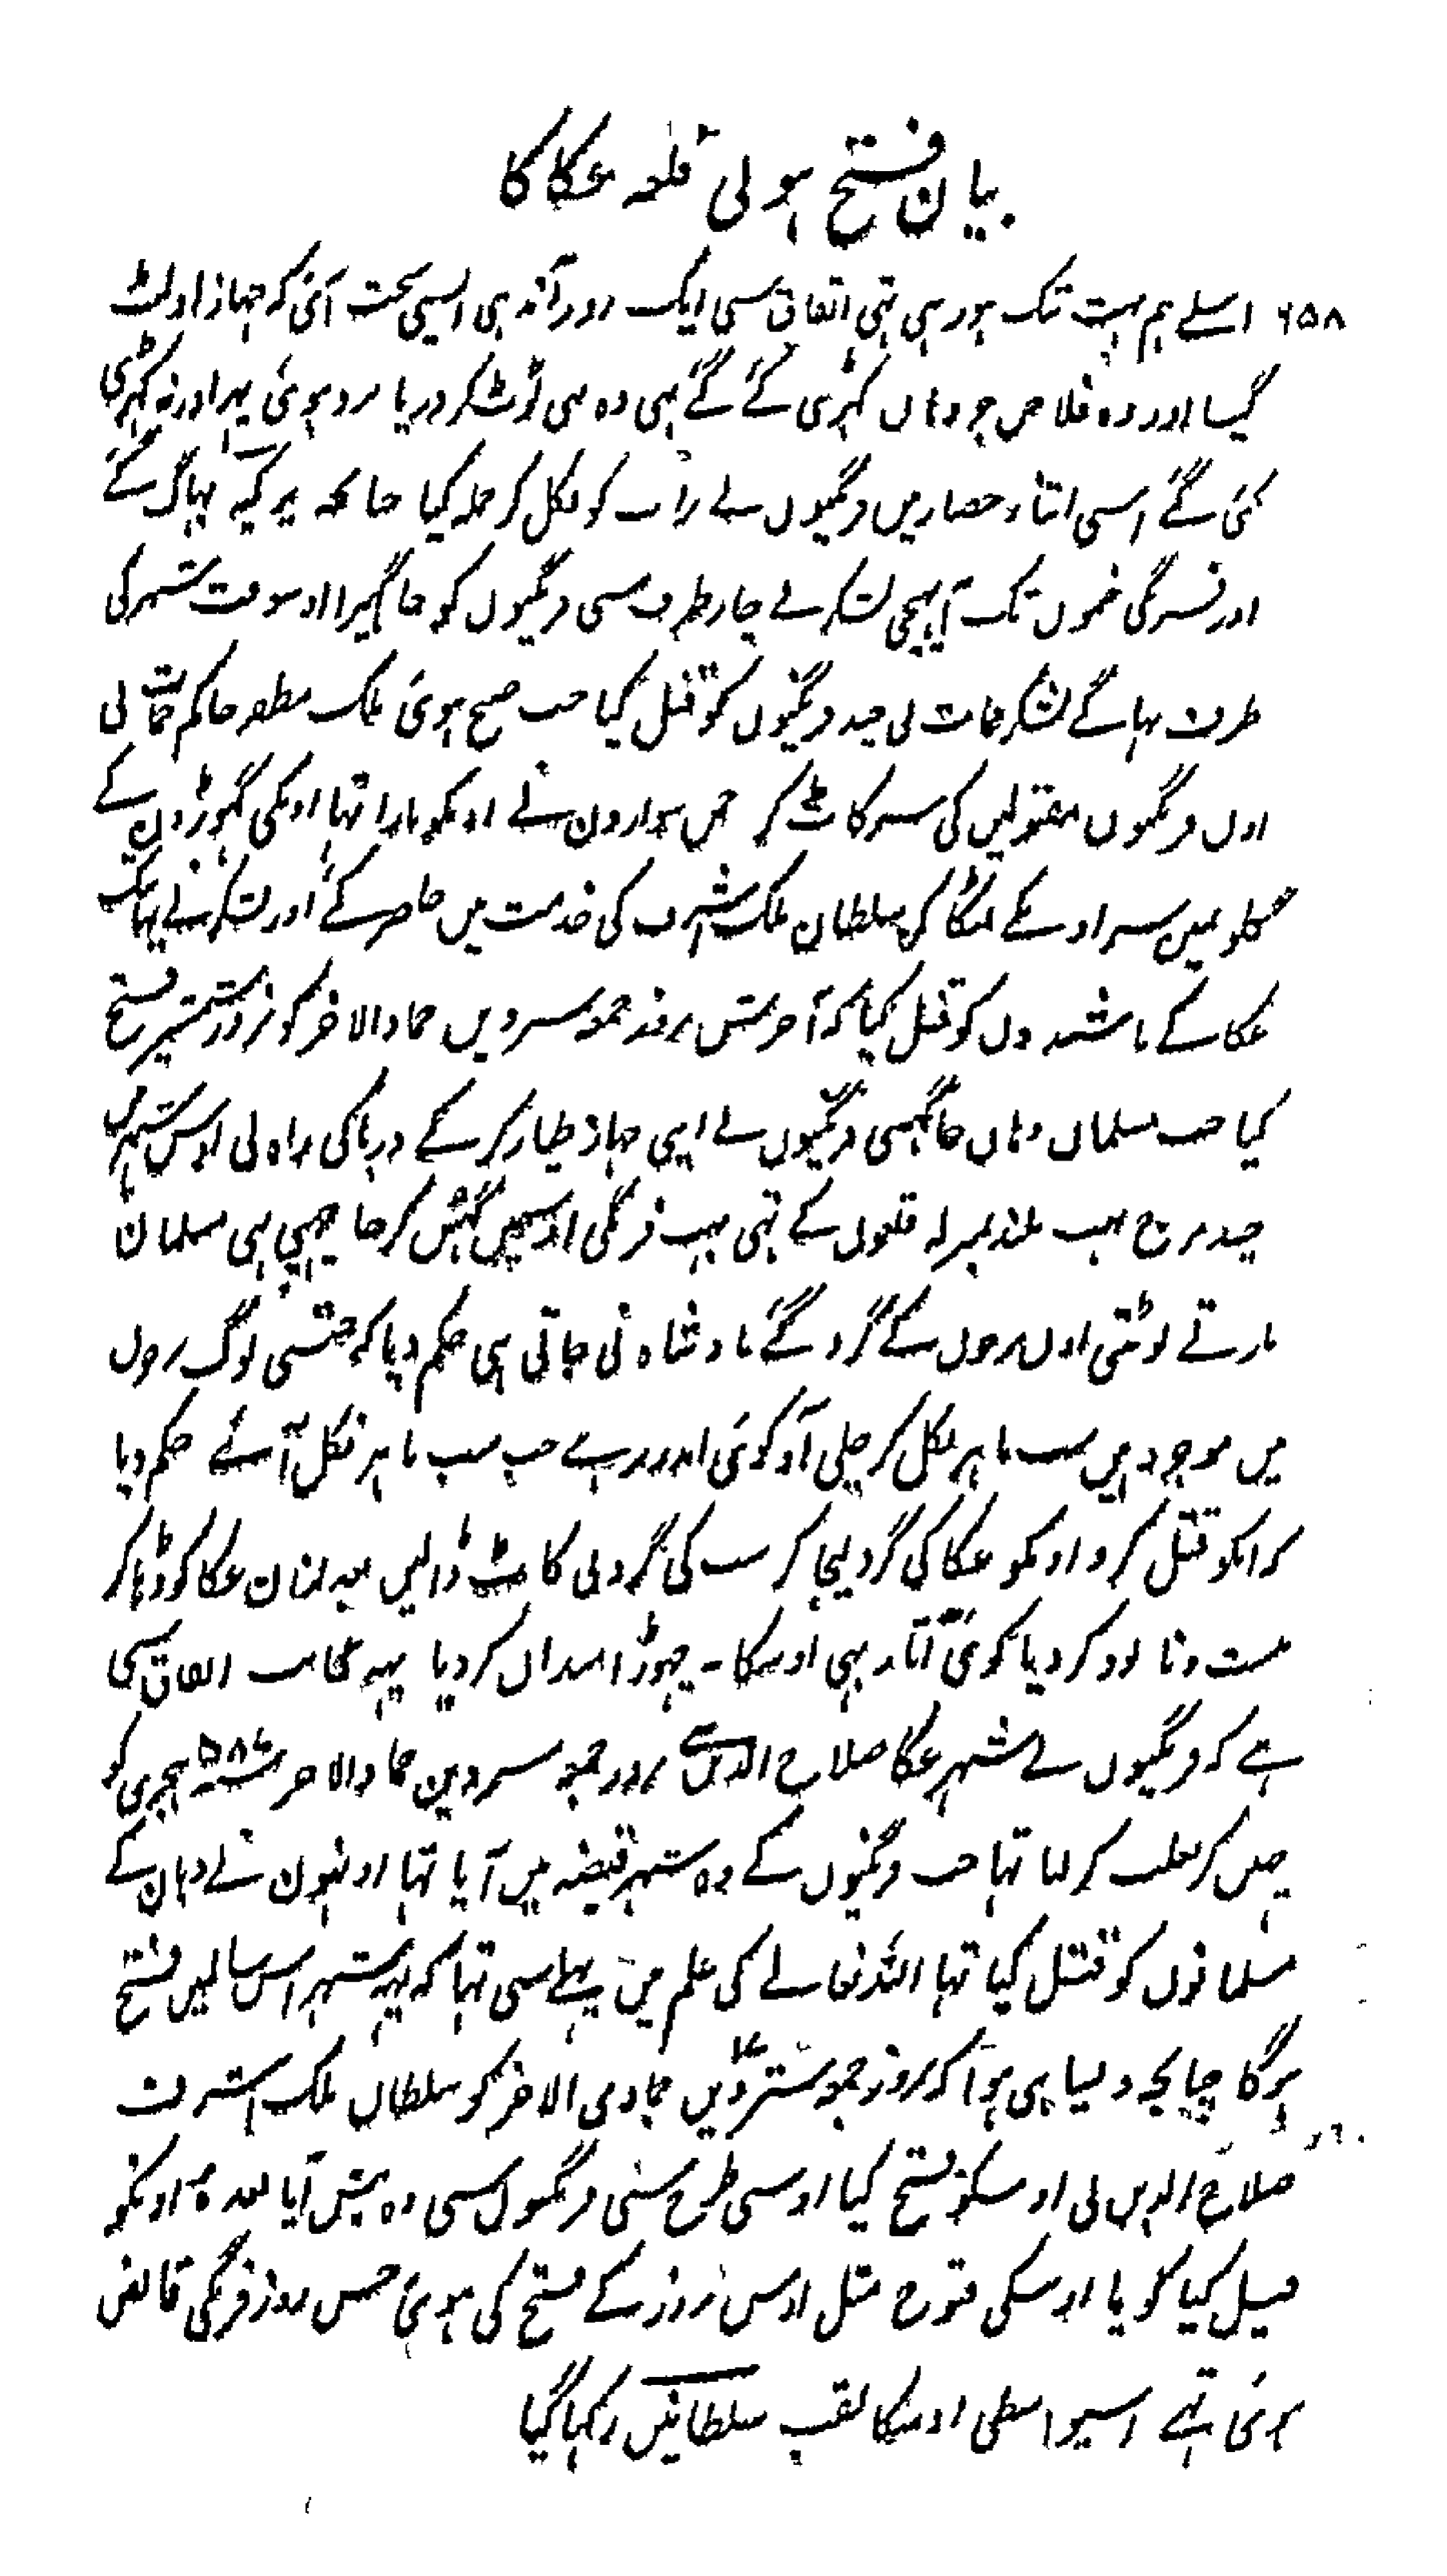 بیان فتح ہونی قلعہ عکا کا
۶۵۸ اسلے ہم بہت تنگ ہورہی تہی اتفاق سی ایک روز آندہی ایسی سخت آئی کہ جہاز اولٹ
گیا اور وہ فلاخن جو وہاں کہڑی کے گئے تہی وہ بہی ٹوٹ کر دریا برد ہوئی پہر اور نہ کہڑی
کئی گئے اسی اثناء حصار میں فرنگیوں نے رات کو نکل کر حملہ کیا چنانچہ یزکیہ بہاگ گئے
اور فرنگی خیموں تک آ پہنچی لشکر نے چار طرف سی فرنگیوں کو جا گہیرا اوسوقت شہر کی
طرف بہاگے لشکر حمات نی چند فرنگیوں کو قتل کیا جب صبح ہوئی ملک مظفر حاکم حمات نی
اون فرنگیوں مقتولین کی سر کاٹ کر جن سواروں نے اونکو مارا تہا اونکی گہوڑوں کے
گلو میں سر اونکے لٹکا کر سلطان ملک اشرف کی خدمت میں حاضر کئے اور لشکر نے یہانتک
عکا کے باشندوں کو قتل کیا کہ آخرش بروز جمعہ سترویں جمادالاخر کو بزور شمشیر فتح
کیا جب مسلمان وہاں جا گہسی فرنگیوں نے اپنی جہاز طیار کر کے دریا کی راہ لی اوس شہر میں
چند برج بہت بلند بمنزلہ قلعوں کے تہی بہت فرنگی اونمیں گہس کر جا چہپی تہی مسلمان
مارتے لوٹتی اون برجوں کے گرد گئے بادشاہ نی جاتی ہی حکم دیا کہ جتنی لوگ برجوں
میں موجود ہیں سب باہر نکل کر چلی آؤ کوئی اندر نرہے جب سب باہر نکل آئے حکم دیا
کہ انکو قتل کرو اونکو عکا کی گرد لیجا کر سب کی گردنی کاٹ ڈالیں بعد ازان عکا کو ڈہا کر
نیست و نابود کر دیا کوئی آثار بہی اوسکا نہ چہوڑا میدان کر دیا یہہ عجائب اتفاق سی
ہے کہ فرنگیوں نے شہر عکا صلاح الدین سے بروز جمعہ سترویں جمادالاخر ۵۸۷ ہجری کو
چہین کر غلبہ کر لیا تہا جب فرنگیوں کے وہ شہر قبضہ میں آیا تہا اونہوں نے وہاں کے
مسلمانوں کو قتل کیا تہا اللہ تعالے کی علم میں پہلے سی تہا کہ یہہ شہر اس سالمیں فتح
ہوگا چنانچہ ویسا ہی ہوا کہ بروز جمعہ سترویں ۱۷ جمادی الاخر کو سلطان ملک اشرف
صلاح الدین نی اوسکو فتح کیا اوسی طرح سنی فرنگیوں سی وہ پیش آیا بعدہ اونکو
قتل کیا گویا اوسکی فتوح مثل اوس روز کے فتح کی ہوئی جس روز فرنگی قابض
ہوئی تہے اسیواسطی اوسکا لقب سلطانیں رکہا گیا